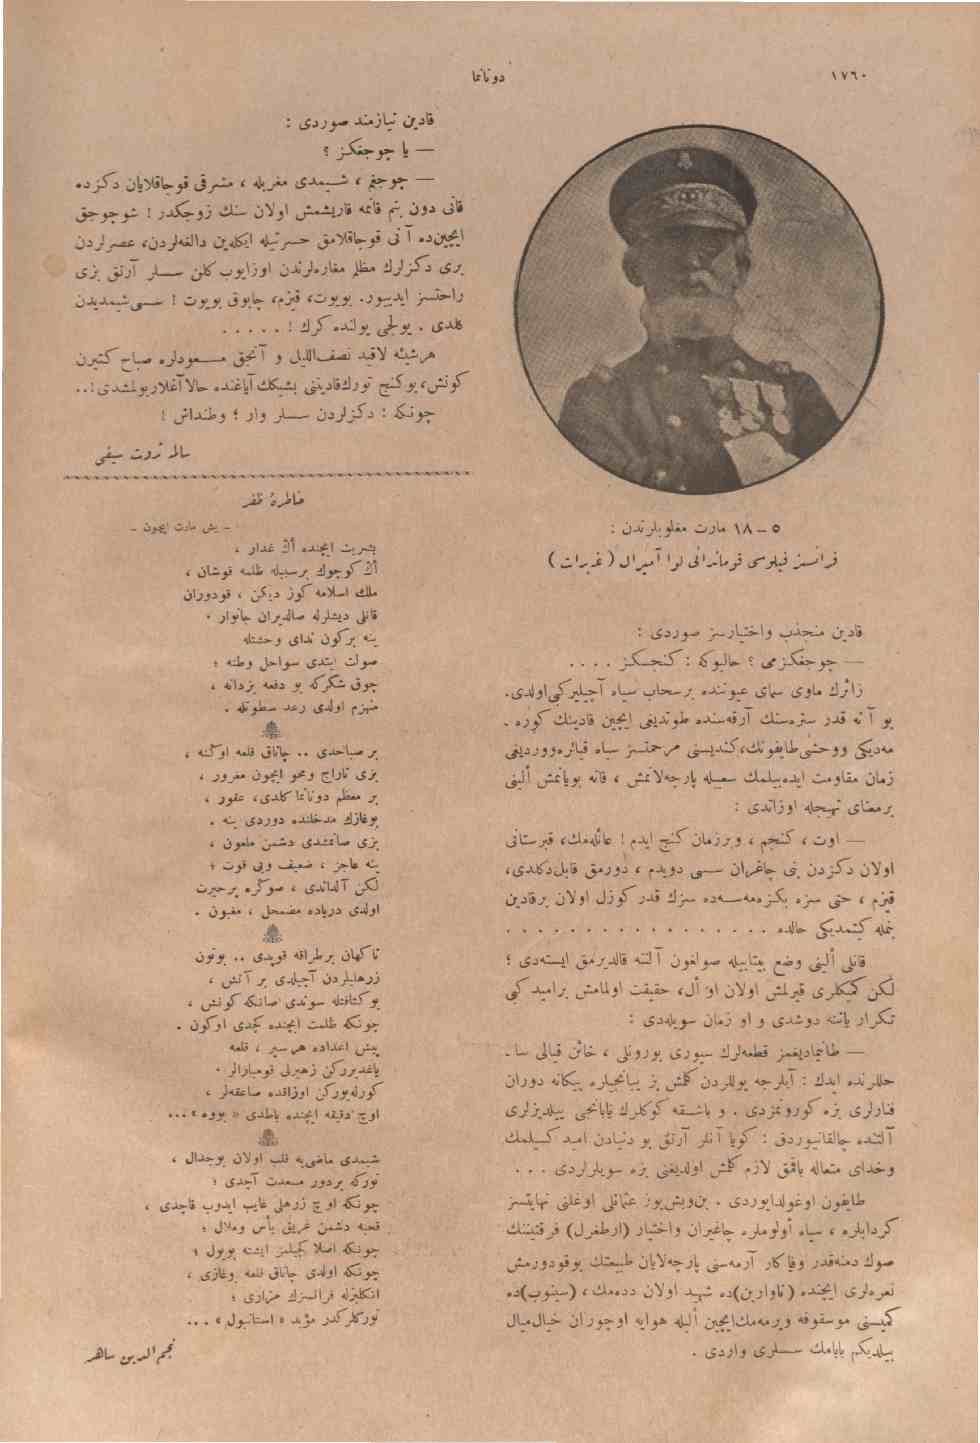 ١٧٦٠
دونانما
٥ – ١٨ مارت مغلوبلرندن :
فرانسز فیلوسی قوماندانی لوا آمیرال ( غه‌پرات )
قادین منجذب واختیارسز صوردی :
— چوجغکزمی ؟ حالبوکه : کنجسکز . . . .
زائرك ماوی سمای عیوننده برسحاب سیاه آچیلیر کبی اولدی.
بو آنه قدر ستره‌سنك آرقه‌سنده طوتدیغی ایچین قادینك کوره ـ
مه‌دیکی ووحشی طایفونك، کندیسنی مرحمتسز سیاه قیالره ووردیغی
زمان مقاومت ایده‌بیلمك سعیله پارچه‌لانمش ، قانه بویانمش ألینی
برمعنای تهییجله اوزاتدی :
— اوت ، کنجم ، وبرزمان کنج ایدم ! عائله‌مك، قبرستانی
اولان دکزدن بنی چاغیران سسی دویدم ، دورمق قابل دکلدی،
قیزم ، حتی سزه بکزه‌مه‌سه‌ده سزك قدر کوزل اولان برقادین
بنمله کیتمدیکی حالده . . . . . . . . . . . . . . . .
قانلی ألینی وضع بیتابیله صولغون آلننه قالدیرمق ایسته‌دی ؛
لکن کمیکلری قیرلمش اولان او أل، حقیقت اولمامش برامید کبی
تکرار یاننه دوشدی و او زمان سویله‌دی :
— طانیمادیغمز قطعه‌لرك سیوری بورونلی ، خائن قیالی سا ـ
حللرنده ایدك : آیلرجه یوللردن کلمش بز یبانجیلره بیکانه دوران
فنارلری بزه کورونمزدی . و باشقه کوکلرك یابانجی ییلدیزلری
آلتنده چالقانیوردق : کویا آنلر آرتق بو دنیادن امید کسیلمك
وخدای متعاله باقمق لازم کلمش اولدیغنی بزه سویلرلردی . . .
طایفون اوغولدایوردی . بن وبش یوز عثمانلی اوغلنی نهایتسز
کردابلره ، سیاه أولوملره چاغیران واختیار (ارطغرل) فرقتیننك
صوك دمنه‌قدر وفاکار آرمه‌سنی پارچه‌لایان طبیعتك بوقودورمش
نعره‌لری ایچنده (ناوارین)ده شهید اولان دده‌مك ، (سینوب)ده
کمیسنی موسقوفه ویرمه‌مك‌ایچین ألیله هوایه اوچوران خیال‌میال
بیلدیکم بابامك سسلری واردی .
قادین نیازمند صوردی :
— یا چوجغکز ؟
— چوجغم ، شیمدی مغربله ، مشرقی قوجاقلایان دکزده
قانی دون بنم قانمه قاریشمش اولان سنك زوجکدر ! شو چوجق
ایچین‌ده آنی قوجاقلامق حسرتیله ایکله‌ین دالغه‌لردن، عصرلردن
بری دکزلرك مظلم مغاره‌لرندن اوزایوب کلن سسلر آرتق بزی
راحتسز ایدییور. بویوت، قیزم، چابوق بویوت ! سسی شیمدیدن
کلدی . یولجی یولنده کرك ! . . . . .
هرشیئه لاقید نصف‌اللیل و آنجق مسعودلره صباح کتیرن
کونش، بوکنج تورك قادیننی بشیکك آیاغنده حالا آغلار بولمشدی !. .
چونکه : دکزلردن سسلر وار ؛ وطنداش !
سالمه ثروت سیفی
خاطرهٔ ظفر
ـ بش مارت ایچون ـ
بشریت ایچنده أڭ غدار ،
أڭ کوچوك برسببله ظلمه قوشان ،
ملك اسلامه کوز دیکن ، قودوران
قانلی دیشلرله صالدیران جانوار .
ینه برکون ندای وحشتله
صولت ایتدی سواحل وطنه ؛
چوق شکرکه بو دفعه یزدانه ،
منهزم اولدی رعد سطوتله .
بر صباحدی .. چاناق قلعه اوکنه ،
بزی تاراج ومحو ایچون مغرور ،
بر معظم دونانما کلدی، عقور ،
بوغازك مدخلنده دوردی ینه .
بزی صانمشدی دشمن ملعون ،
ینه عاجز ، ضعیف وبی قوت ؛
لکن آلداندی ، صوکره پرحیرت
اولدی دریاده مضمحل ، مغبون .
ناکهان برطراقه قوپدی .. بوتون
زرهلیلردن آچیلدی بر آتش ،
بو کثافتله سوندی صانکه کونش ،
چونکه ظلمت ایچنده کچدی اوکون .
پیش اعداده هرسپر ، قلعه
یاغدیررکن زهیرلی قومبارالر .
کورله‌یورکن اوزاقده صاعقه‌لر ،
اوچ دقیقه ایچنده باطدی « بووه » ...
شیمدی ماضی‌یه قلب اولان بوجدال ،
تورکه بردور مسعدت آچدی ؛
چونکه اوچ زرهلی غایب ایدوب قاچدی ،
قحبه دشمن غریق یأس وملال ؛
چونکه اصلا کچیلمز ایشته بویول ؛
چونکه اولدی چاناق قلعه بوغازی ،
انکلیزله فرانسزك مزاری ؛
تورکلرکدر مؤبد « استانبول » ...
نجم الدین ساهر